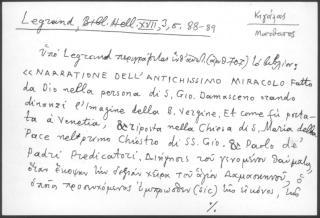 Legrand, Bibl. Hell. XVII, 3, σ. 88-89
Κιγάλας
Ματθαῖος
Ὑπὸ Legrand περιγράφεται (ἀρθ. 707) τὸ βιβλίον:
«NARRATIONE DELL'ANTICHISSIMO MIRACOLO Fatto
da Dio nella persona di S. Gio. Damasceno orando
dinanzi l'Imagine della B. Vergine. Et come fù porta-
ta à Venetia, & riposta nella Chiesa di S. Maria della
Pace nel primo Chiostro di SS. Gio. & Paolo de'
Padri Predicatori. Διήγησις τοῦ γινομένου θαύματος,
ὅταν ἔκοψαν τὴν δεξιὰν χεῖρα τοῦ ἁγίου Δαμασκηνοῦ, ὁ
ὁποῖος προσευχόμενος ἔμπροσθεν (sic) τὴν εἰκόνα, τῆς
%